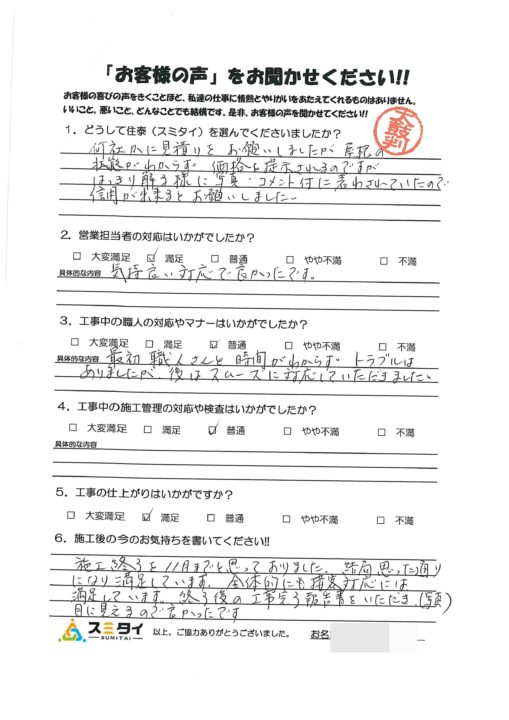 「お客様の声」をお聞かせください!!
お客様の喜びの声をきくことほど、私達の仕事に情熱とやりがいをあたえてくれるものはありません。
いいこと、悪いこと、どんなことでも結構です。是非、お客様の声を聞かせてください!!
太鼓判
1．どうして住泰（スミタイ）を選んでくださいましたか？
何社かに見積りをお願いしましたが屋根の
状態がわからず価格を提示されるのですが
はっきり解る様に写真・コメント付に表わされていたので
信用が出来るとお願いしました。
2．営業担当者の対応はいかがでしたか？
□ 大変満足 ☑ 満足 □ 普通 □ やや不満 □ 不満
具体的な内容 気持良い対応で良かったです。
3．工事中の職人の対応やマナーはいかがでしたか？
□ 大変満足 □ 満足 ☑ 普通 □ やや不満 □ 不満
具体的な内容 最初職人さんと時間がわからず トラブルは
ありましたが、後はスムーズに対応していただきました。
4．工事中の施工管理の対応や検査はいかがでしたか？
□ 大変満足 □ 満足 ☑ 普通 □ やや不満 □ 不満
具体的な内容
5．工事の仕上がりはいかがですか？
□ 大変満足 ☑ 満足 □ 普通 □ やや不満 □ 不満
6．施工後の今のお気持ちを書いてください!!
施工終了を11月までと思っておりました。結局思った通り
になり満足しています。全体的にも 対応には
満足しています。終了後の工事完了報告書をいただき、(写真)
目に見えるので良かったです
スミタイ
SUMITAI
以上、ご協力ありがとうございました。 お名